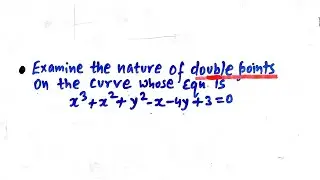 • Examine the nature of double points
on the curve whose Eqn. is
x³+x²+y²-x-4y+3=0